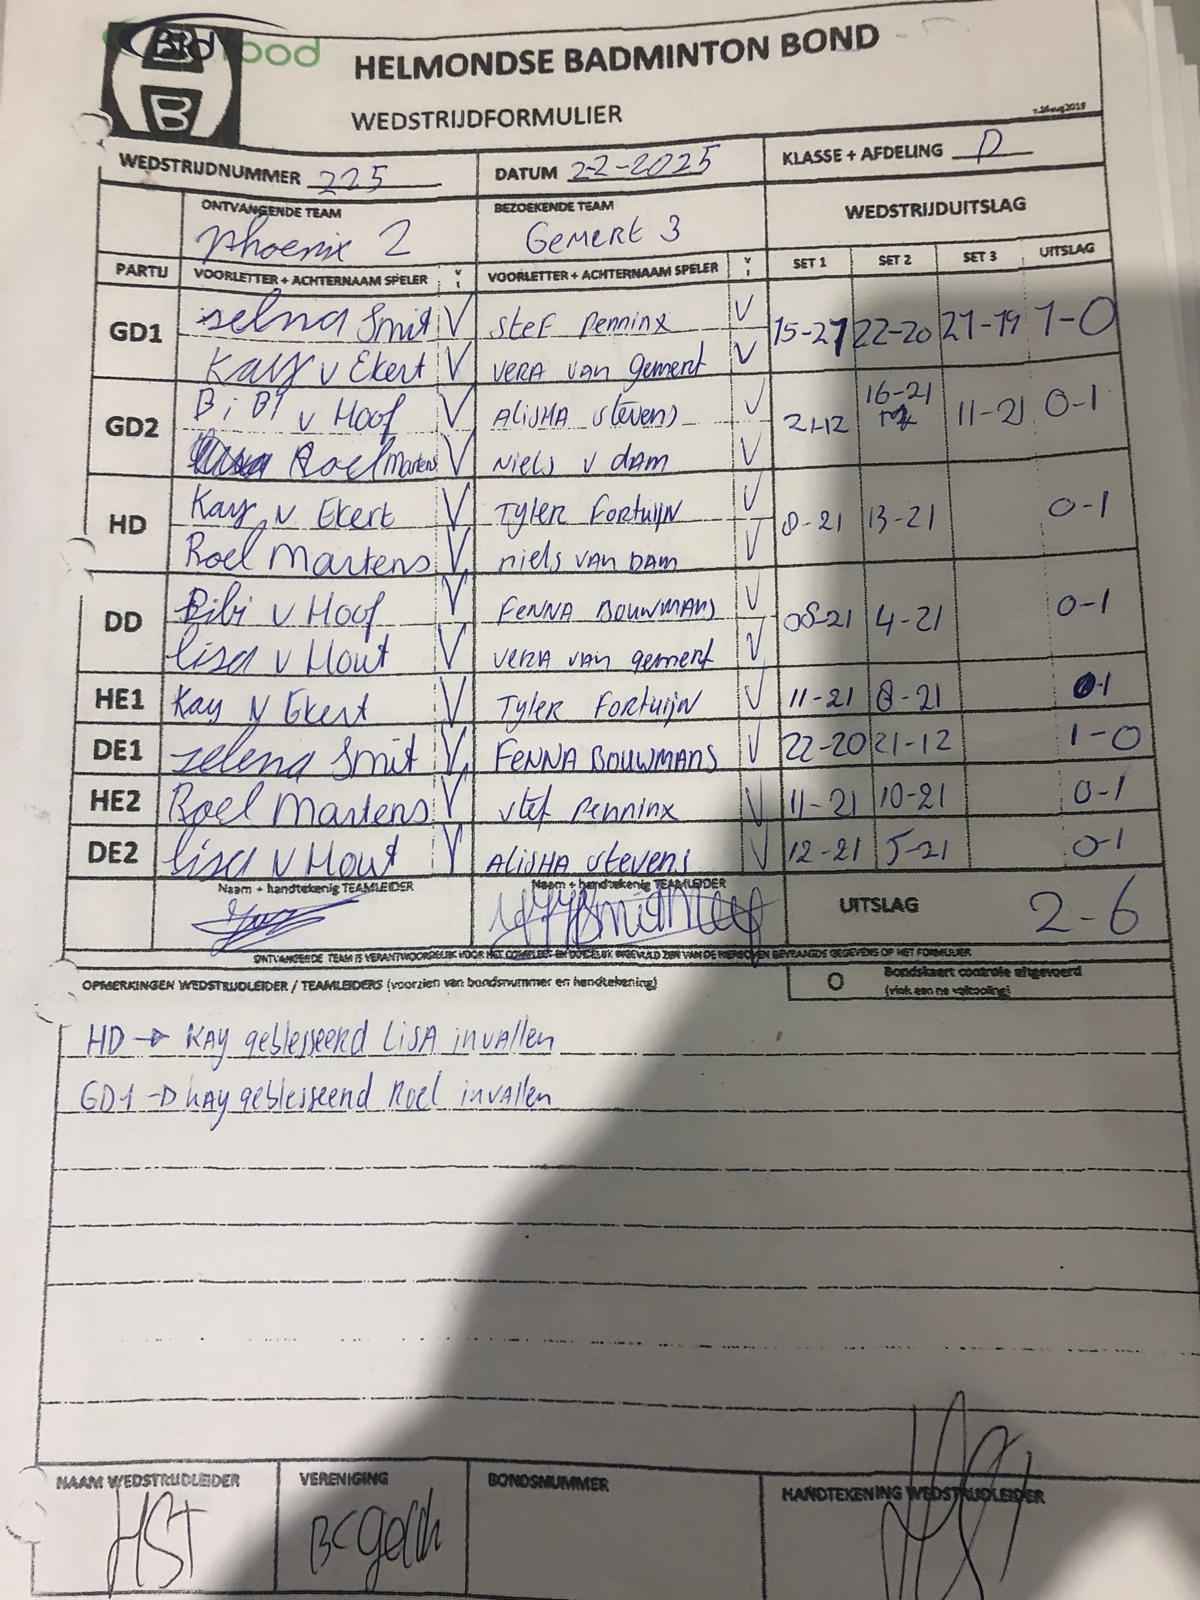 Bidfood
HELMONDSE BADMINTON BOND
WEDSTRIJDFORMULIER
WEDSTRIJDNUMMER 225 DATUM 2-2-2025 KLASSE + AFDELING D
ONTVANGENDE TEAM BEZOEKENDE TEAM WEDSTRIJDUITSLAG
Phoenix 2 Gemert 3
PARTIJ VOORLETTER + ACHTERNAAM SPELER V VOORLETTER + ACHTERNAAM SPELER V SET 1 SET 2 SET 3 UITSLAG
GD1 Selena Smit V Stef Penninx V 15-21 22-20 21-19 1-0
Kay v Ekert V VERA VAN gemert V
GD2 BiBi v Hoof V ALISHA Stevens V 21-12 16-21 11-21 0-1
Roel Martens V NIELS v DAM V
HD Kay v Ekert V Tyler Fortuijn V 8-21 13-21 0-1
Roel Martens V niels VAN DAM V
DD Bibi v Hoof V FENNA BOUWMANS V 08-21 4-21 0-1
Lisa v Hout V VERA VAN gemert V
HE1 Kay v Ekert V Tyler Fortuijn V 11-21 8-21 0-1
DE1 Selena Smit V FENNA BOUWMANS V 22-20 21-12 1-0
HE2 Roel Martens V Stef Penninx V 11-21 10-21 0-1
DE2 Lisa v Hout V ALISHA Stevens V 12-21 5-21 0-1
Naam + handtekenig TEAMLEIDER Naam + handtekenig TEAMLEIDER UITSLAG 2-6
ONTVANGENDE TEAM IS VERANTWOORDELIJK VOOR HET COMPLEET EN DUIDELIJK INGEVULD ZIJN VAN DE GEGEVENS OP HET FORMULIER
OPMERKINGEN WEDSTRIJDLEIDER / TEAMLEIDERS (voorzien van bondsnummer en handtekening) O Bondskaart controle uitgevoerd
HD → KAY geblesseerd LISA invallen
GD1 → KAY geblesseerd Roel invallen
NAAM WEDSTRIJDLEIDER VERENIGING BONDSNUMMER HANDTEKENING WEDSTRIJDLEIDER
HST